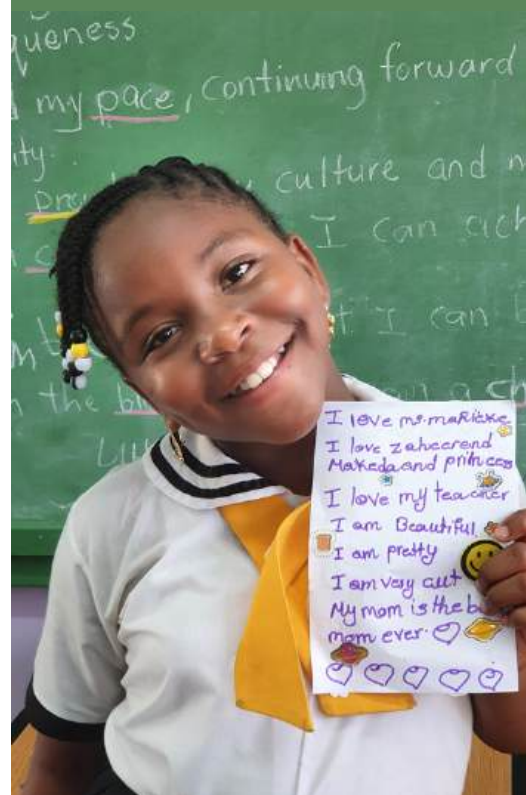 queness
my pace, continuing forward
ity.
culture and
I can
I can
the
I love ms. maRicke
I love zaheerend
Makeda and princess
I love my teacher
I am Beautiful
I am pretty
I am very cut
My mom is the
mom ever.